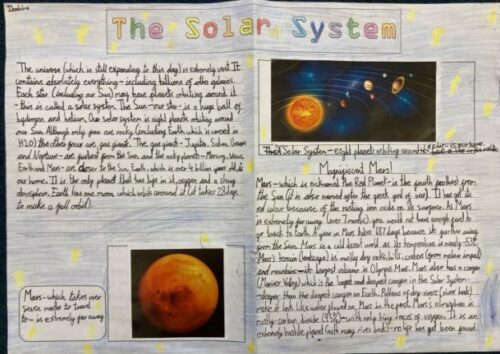 The Solar System
The universe (which is still expanding to this day) is extremely vast. It
contains absolutely everything - including billions of other galaxies.
Each star (including our Sun) may have planets orbiting around it
- this is called a solar system. The Sun - our star - is a huge ball of
hydrogen and helium. Our solar system is eight planets orbiting around
our Sun. Although only four are rocky (including Earth which is covered in
H2O) the other four are gas giants. The gas giants - Jupiter, Saturn, Uranus
and Neptune - are furthest from the Sun and the rocky planets - Mercury, Venus,
Earth and Mars - are closer to the Sun. Earth, which is over 4 billion years old, is
our home. It is the only planet that has life in it, oxygen and a strong
atmosphere. Earth has one moon, which orbits around it (it takes 28 days
to make a full orbit).
Mars - which takes over
seven months to travel
to - is extremely far away
The Solar System - eight planets orbiting around
Magnificent Mars!
Mars - which is nicknamed the Red Planet - is the fourth
from the
Sun (it is also named after the greek god of war). It has got its
red colour because of the rusting iron oxide on its surface. As Mars
is extremely far away (over 7 months), you would not have enough fuel to
go back to Earth. A year on Mars takes 687 days because it's further away
from the Sun. Mars is a cold desert world as its temperature is nearly
Mars's terrain (landscape) is mostly dry rocks,
and mountains - its largest volcano is Olympus Mons. Mars also has a canyon
(Mariner Valley) which is the largest and deepest canyon in the Solar System -
deeper than the deepest canyon on Earth. Patterns of dry rivers (river beds)
make it look like water flowed on Mars in the past. Mars's atmosphere is
mostly carbon dioxide (95%) - with only tiny traces of oxygen. It is an
extremely hostile planet (with many river beds) - no life has yet been found.